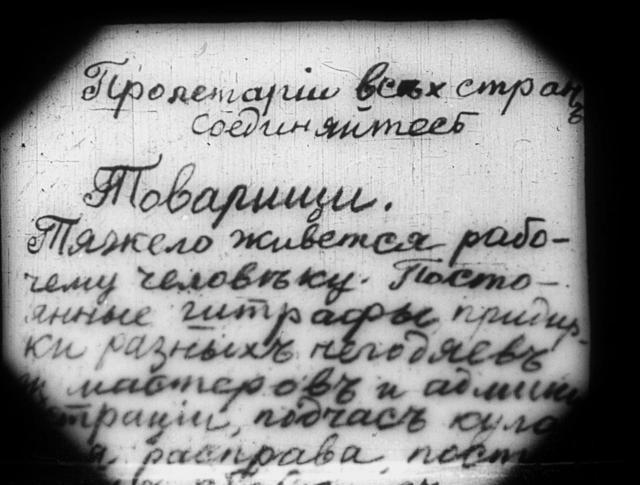 Пролетаріи всѣхъ странъ
соединяйтесь
Товарищи.
Тяжело живется рабо-
чему человѣку. Посто-
янные штрафы, придир-
ки разныхъ негодяевъ
мастеровъ и админи
страціи, подчасъ кула
я расправа, пост